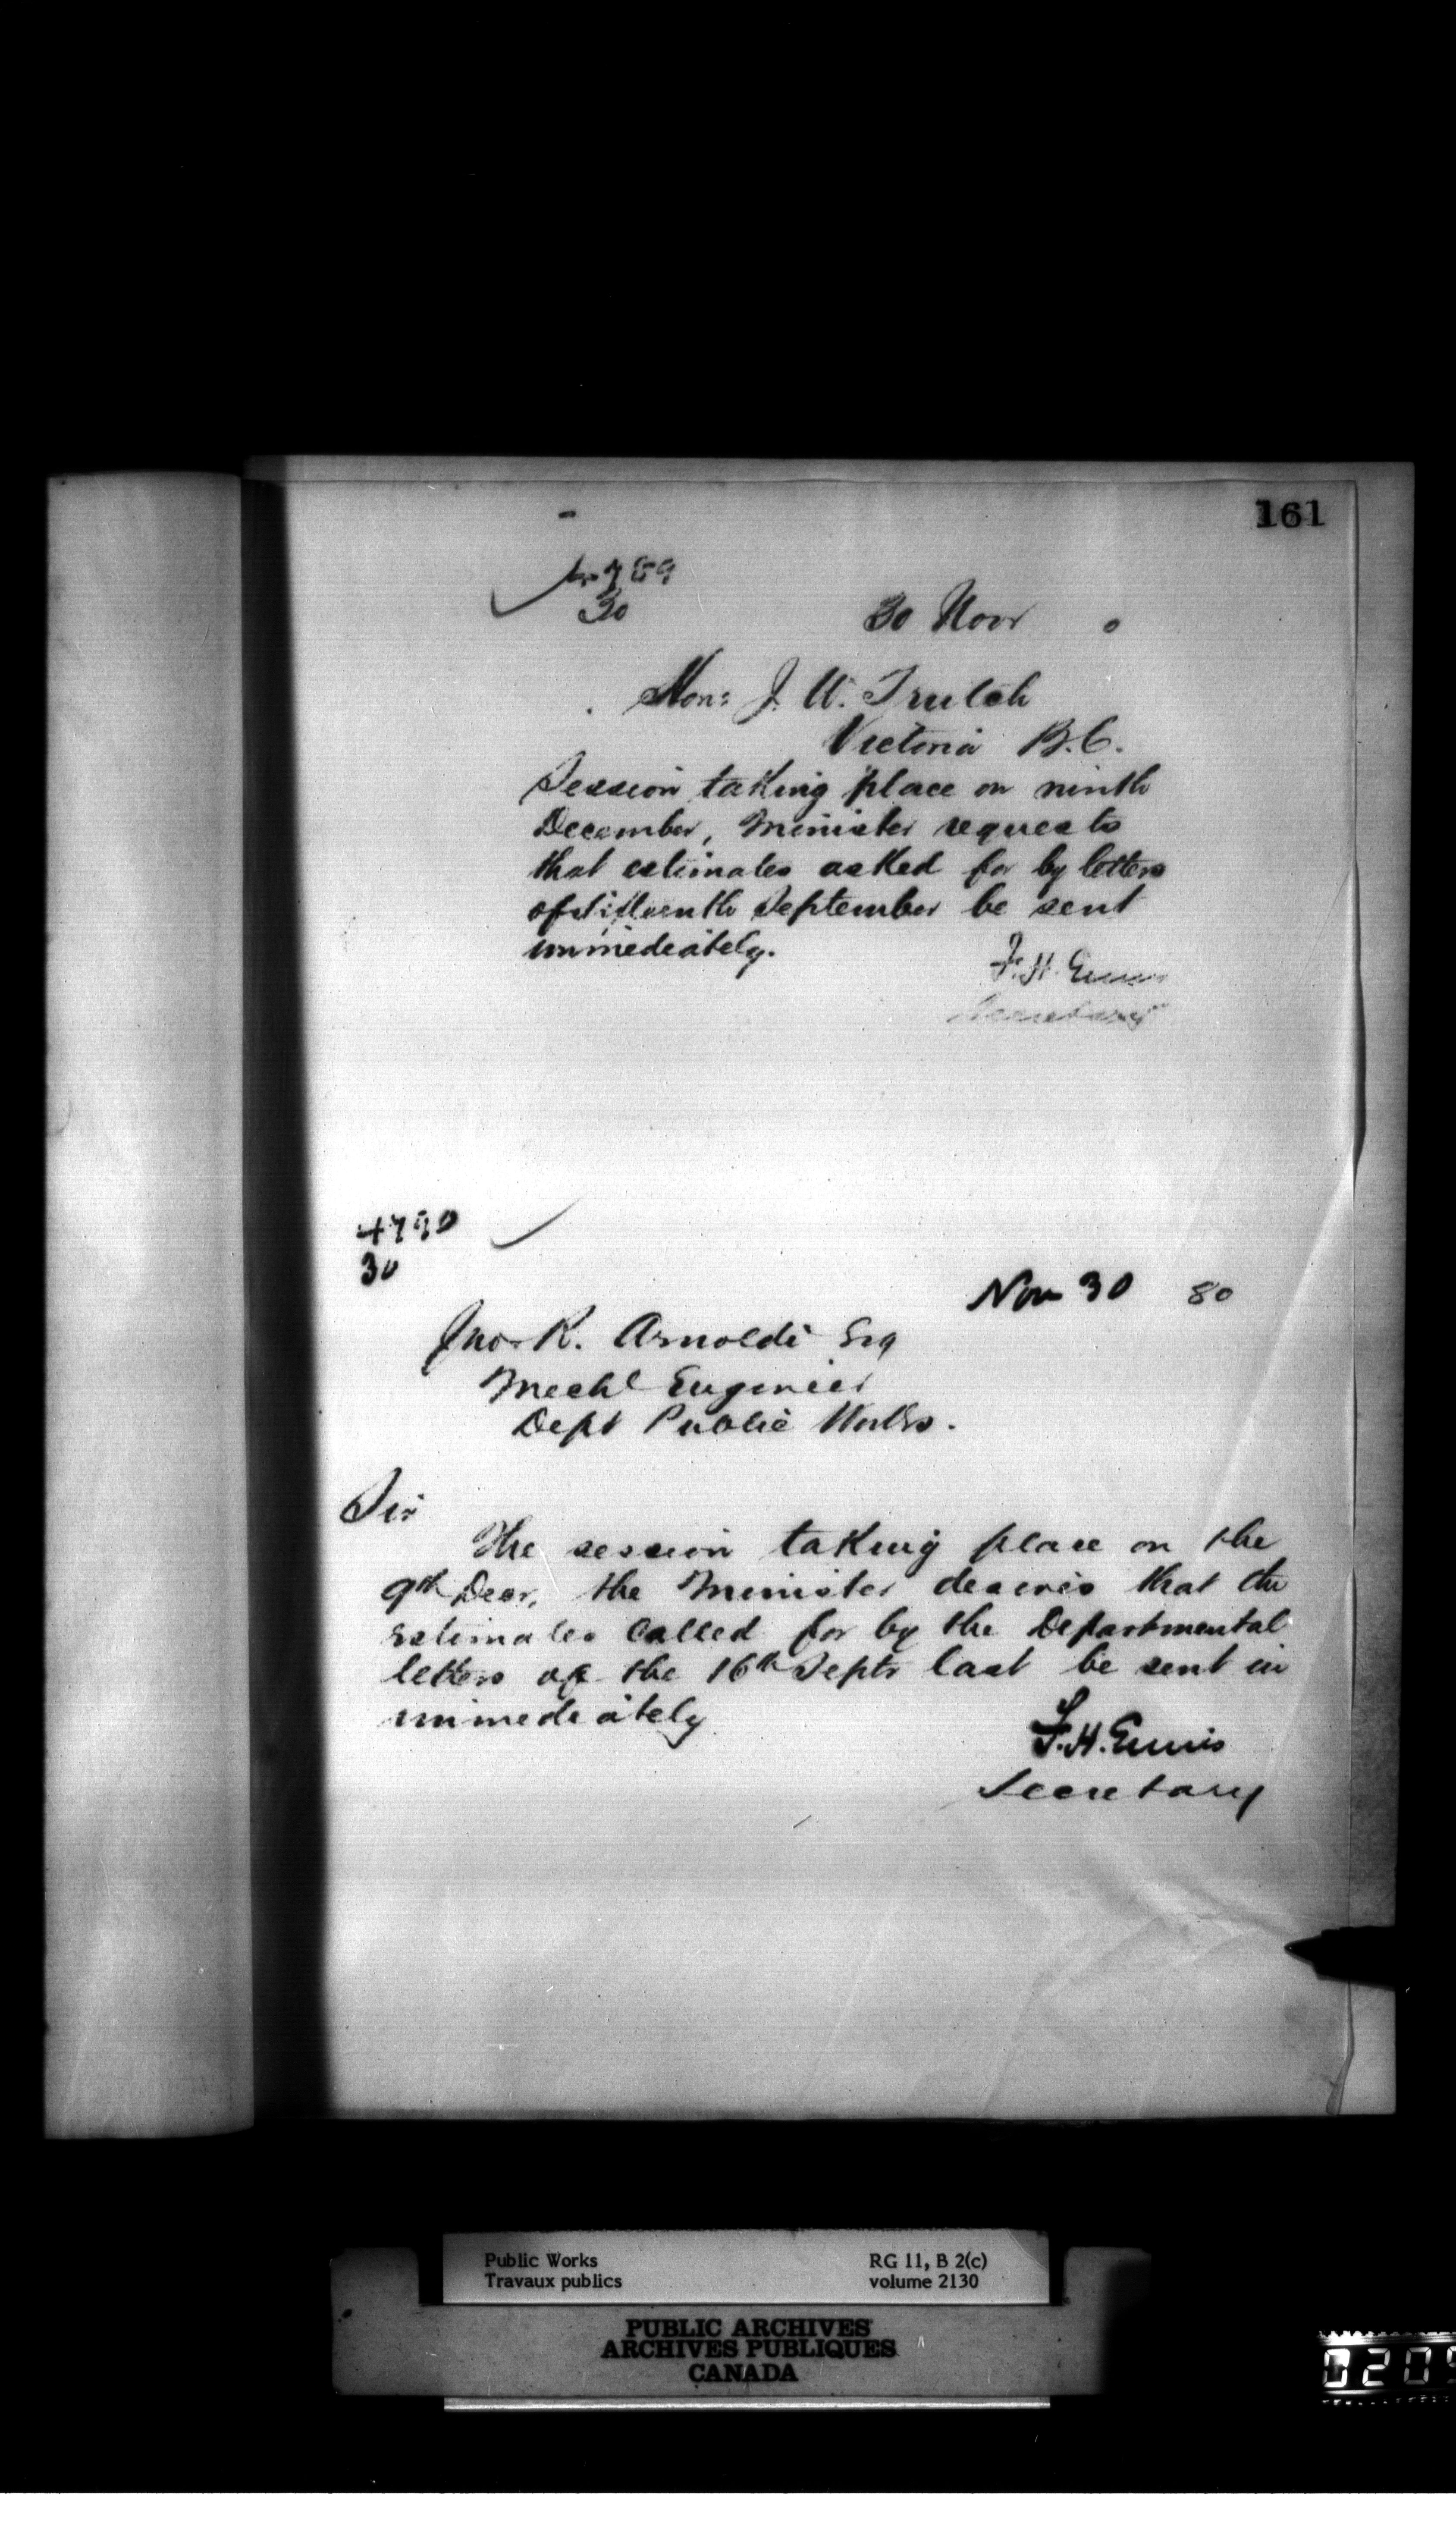 161
4789
30
30 Novr 0
Hon: J. W. Trutch
Victoria B.C.
Session taking place on ninth
December, Minister requests
that estimates asked for by letters
of September be sent
immediately.
F. H. Ennis
Secretary
4790
30
Nov 30 80
Jno. R. Arnoldi Esq
Mechl Engineer
Dept Public Works.
Sir
The session taking place on the
9th Decr, the Minister desires that the
estimates called for by the Departmental
letters of the 16th Septr last be sent in
immediately
F. H. Ennis
Secretary
Public Works RG 11, B 2(c)
Travaux publics volume 2130
PUBLIC ARCHIVES
ARCHIVES PUBLIQUES
CANADA